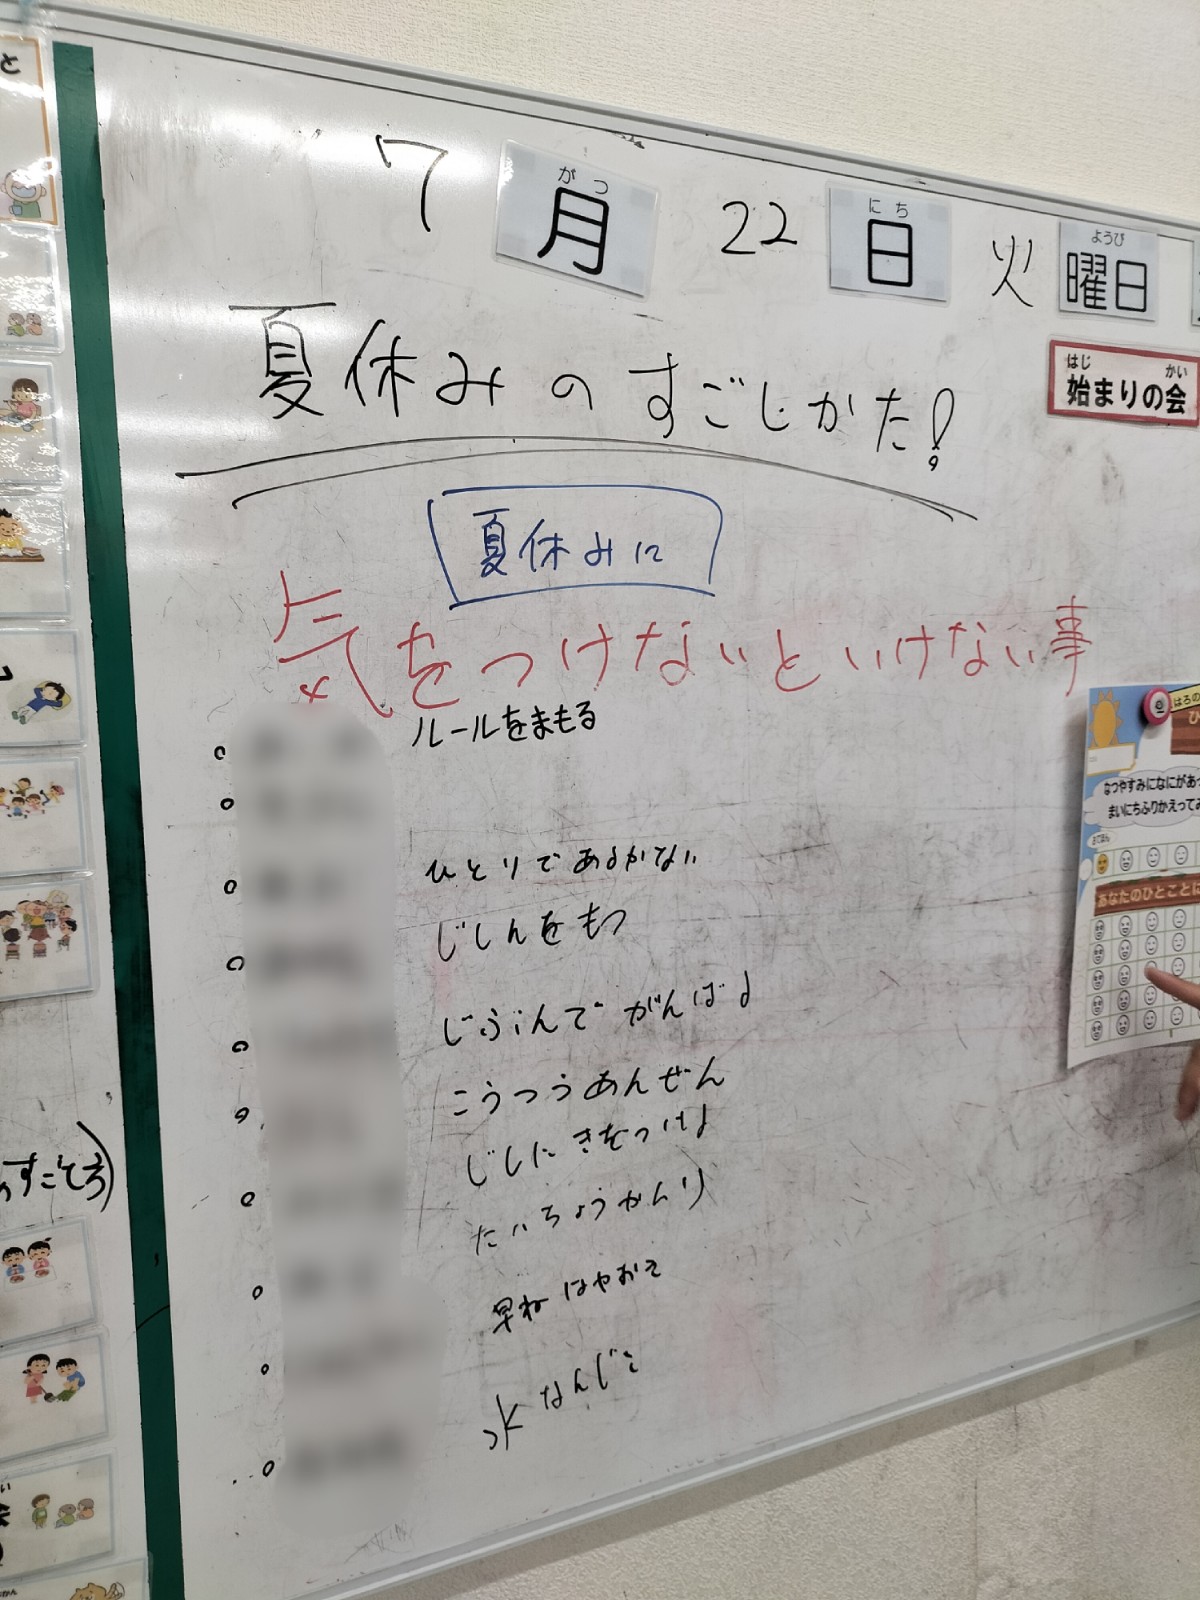 7月22日火曜日
がつ
にち
ようび
夏休みのすごしかた!
始まりの会
はじ
かい
夏休みに
気をつけないといけない事
ルールをまもる
ひとりであるかない
じしんをもつ
じぶんで がんばる
こうつうあんぜん
じしに きをつける
たいちょうかんり
早ね はやおき
水なんじ
はろの
なつやすみになにがあっ
まいにちふりかえってみ
あなたのひとことに
すごろく)
と